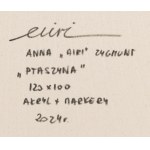 airi
ANNA „AIRI" ZYGMUNT
„PTASZYNA"
120 x 100
AKRYL + MARKERY
2024r.